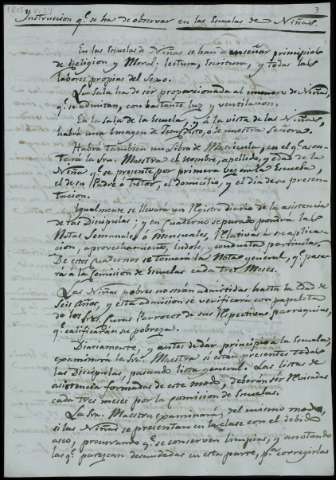 3
Instruccion q.e se ha de observar en las Escuelas de Niñas.
En las Escuelas de Niñas se han de enseñar principios
de Religion y Moral; lectura, Escritura, y todas las
labores propias del Sexo.
La Sala ha de ser proporcionada al numero de Niñas,
q.e se admitan, con bastante luz y ventilacion.
En la Sala de la Escuela, y á la vista de las Niñas,
habrá una Imagen de Jesu-Cristo, ó de nuestra Señora.
Habrá tambien un Libro de Matricula, en el q.e asen-
tará la Sra. Maestra el nombre, apellido, y edad de la
Niña q.e se presente por primera vez en la Escuela,
el de su Padre ó Tutor, el domicilio, y el dia de su presen-
tacion.
Igualmente se llevará un Registro diario de la asistencia
de sus Discipulas; y en Cuaderno separado pondrá las
Notas Semanales ó Mensuales, relativas á su aplica-
cion, aprovechamiento, indole, y conducta particular.
De estos cuadernos se tomará la Nota general, q.e pasa-
rá á la Comision de Escuelas cada tres Meses.
Las Niñas pobres no serán admitidas hasta la Edad de
seis Años, y esta admision se verificará con papeleta
de los Sres. Curas Parrocos de sus respectivas parroquias,
q.e calificarán su pobreza.
Diariamente, y antes de dar principio á la Escuela,
examinará la Sra. Maestra si estan presentes todas
las Discipulas, pasando lista general. Las listas de
asistencia formadas de este modo, deberán ser revisadas
cada tres meses por la Comision de Escuelas.
La Sra. Maestra examinará del mismo modo,
si las Niñas se presentan en la clase con el debido
aseo, procurando q.e se conserven limpias, y anotando
las q.e parezcan descuidadas en esta parte, p.a corregirlas